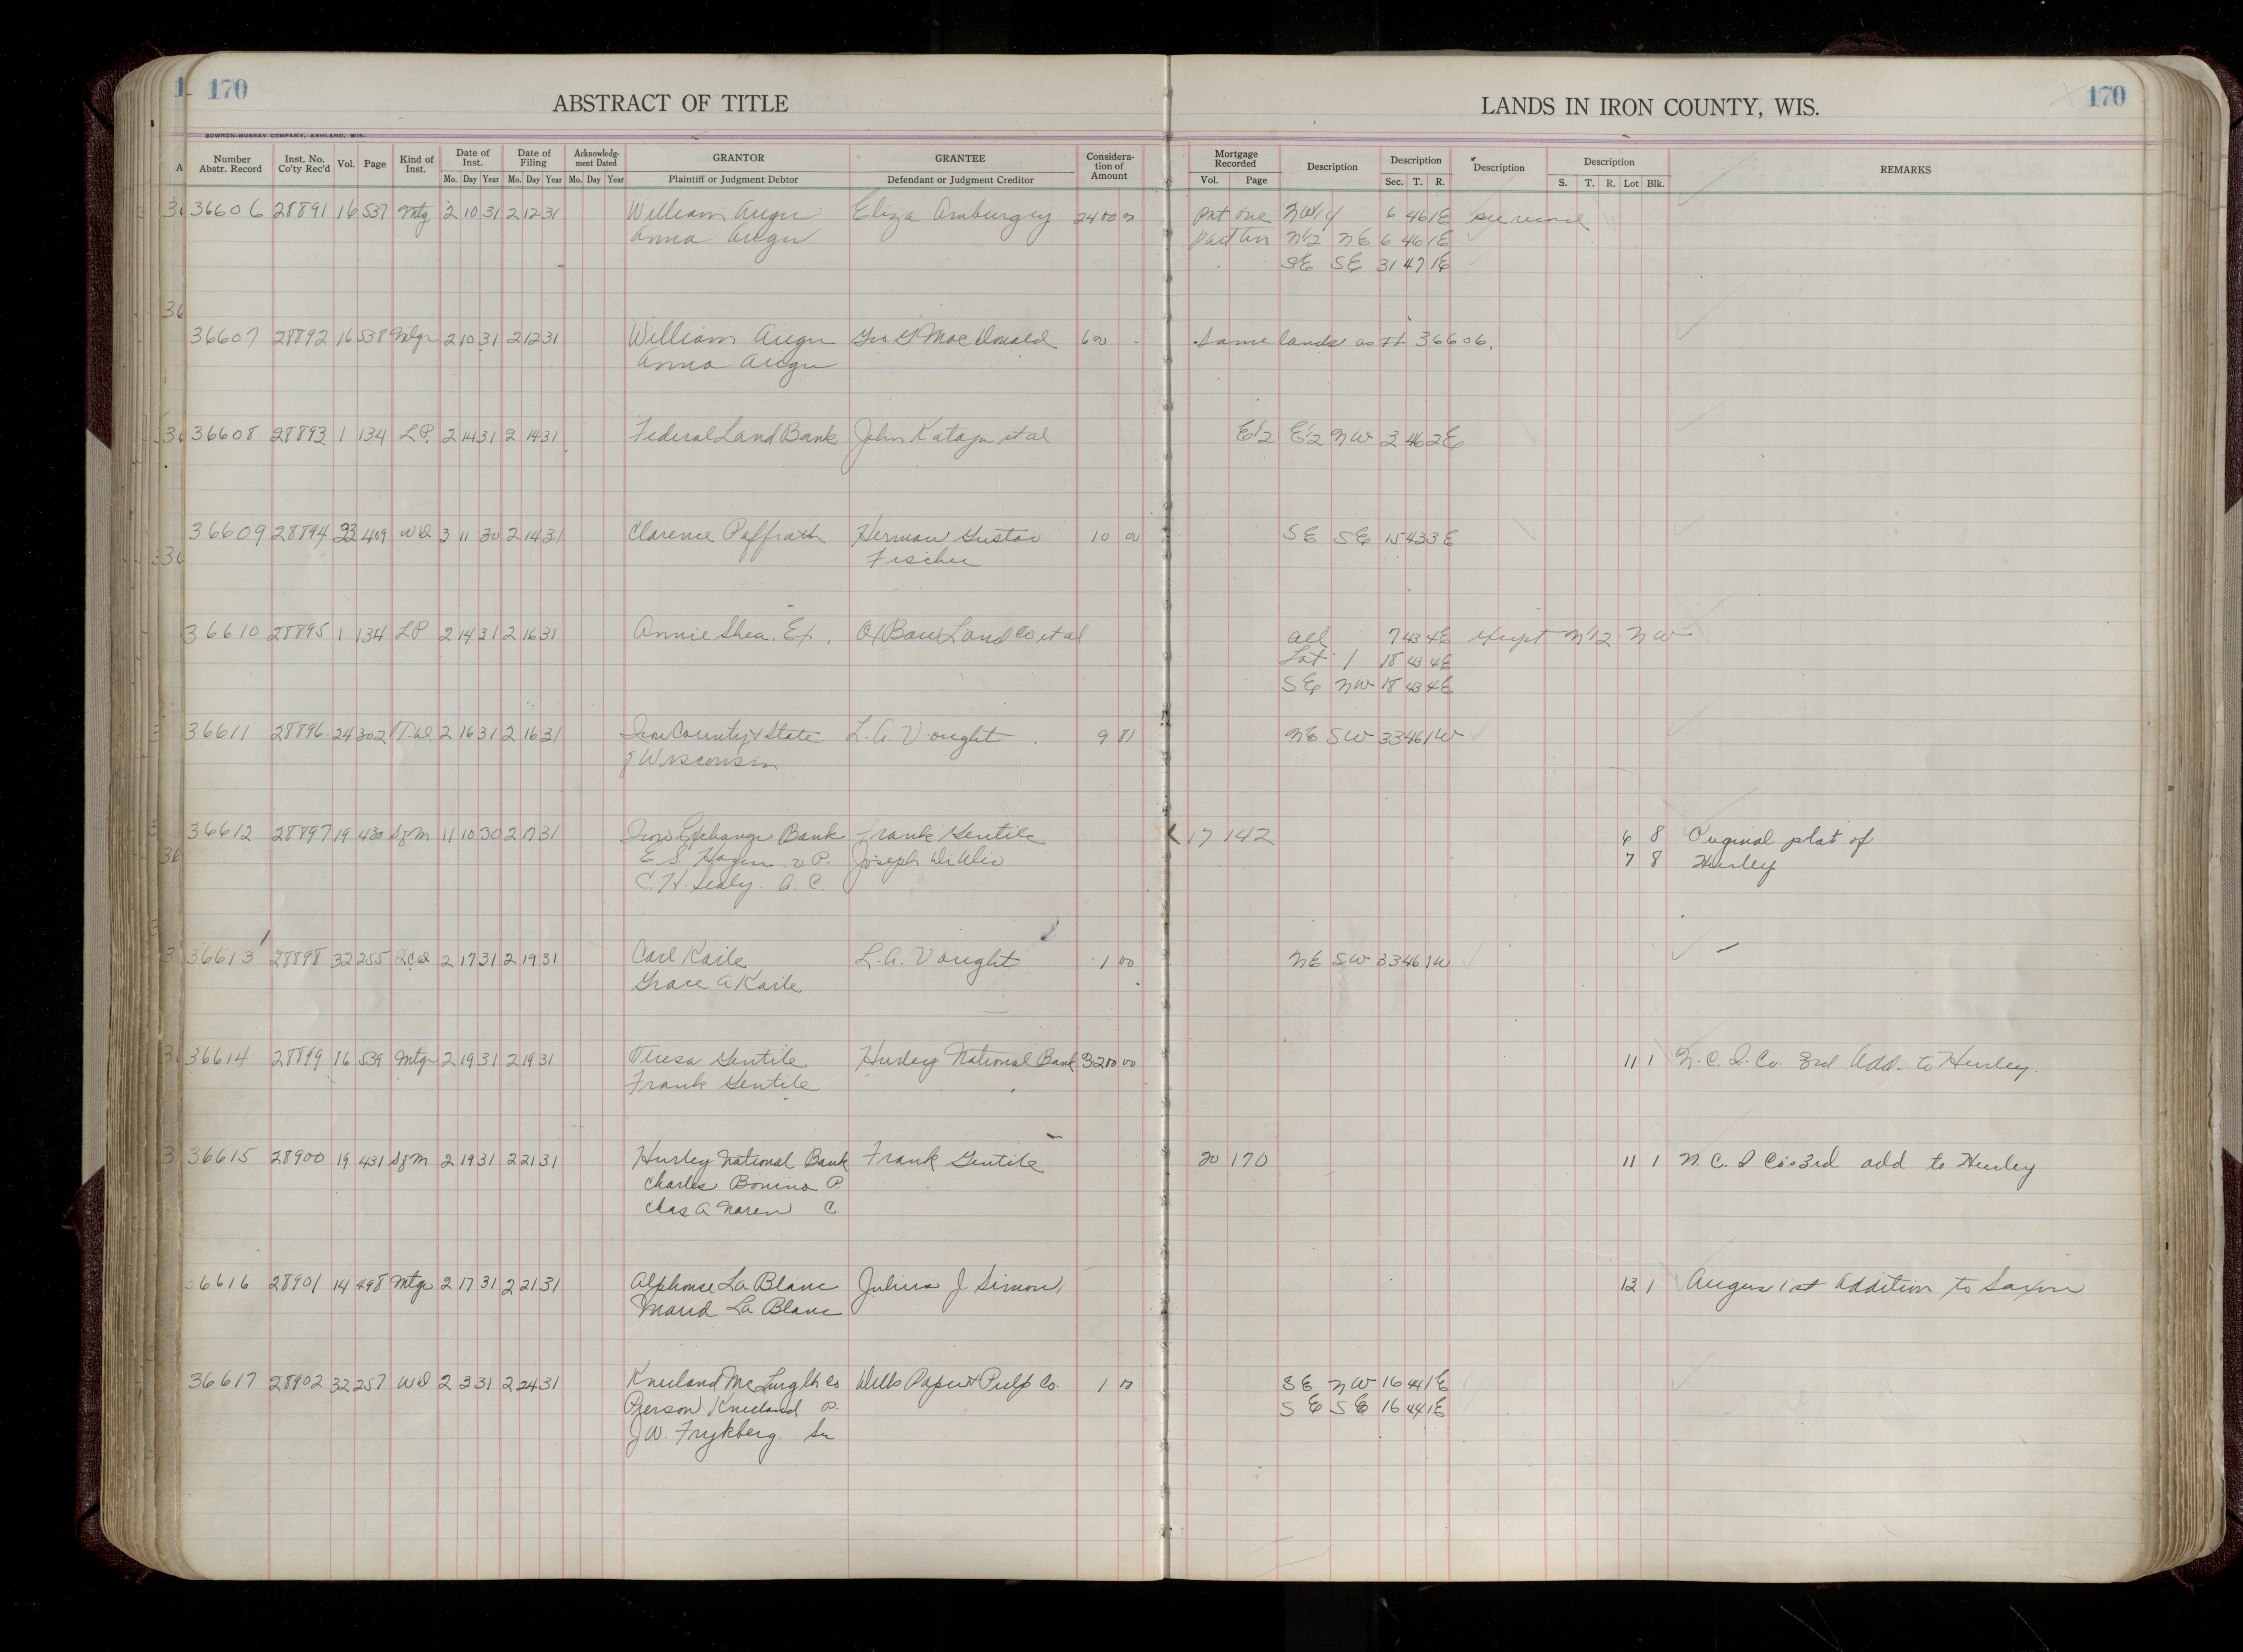 170
ABSTRACT OF TITLE
LANDS IN IRON COUNTY, WIS.
170
BOWRON-MURRAY COMPANY, ASHLAND, WIS.
Number Abstr. Record Inst. No. Co'ty Rec'd Vol. Page Kind of Inst. Date of Inst. Mo. Day Year Date of Filing Mo. Day Year Acknowledg-ment Dated Mo. Day Year GRANTOR Plaintiff or Judgment Debtor GRANTEE Defendant or Judgment Creditor Considera-tion of Amount Mortgage Recorded Vol. Page Description Description Sec. T. R. Description Description S. T. R. Lot Blk. REMARKS
36606 28891 16 537 Mtg 2 10 31 2 12 31 William Auger Eliza Amburgey 2400 00 Part one NW1/4 6 46 1E see record
Anna Auger Part two N1/2 NE 6 46 1E
SE SE 31 47 1E
36607 28892 16 538 Mtg 2 10 31 2 12 31 William Auger Geo. G MacDonald 600 - Same lands as # 36606.
Anna Auger
36608 28893 1 134 L.P. 2 14 31 2 14 31 Federal Land Bank John Kataja et al E1/2 E1/2 NW 3 46 2E
36609 28894 33 409 WD 3 11 30 2 14 31 Clarence Paffrath Herman Gustav 10 00 SE SE 15 43 3E
Fischer
36610 28895 1 134 LP 2 14 31 2 16 31 Annie Shea. Ex. Ox Bow Land Co et al All 7 43 4E Except N1/2 NW
Lot 1 18 43 4E
SE NW 18 43 4E
36611 28896 24 302 T.D. 2 16 31 2 16 31 Iron County & State L. A. Vought 9 81 NE SW 33 46 1W
of Wisconsin
36612 28897 19 430 SfM 11 10 30 2 17 31 Iron Exchange Bank Frank Gentile 17 142 6 8 Original plat of
E. S. V.P. Joseph 7 8 Hurley
C. H. Sealy. A. C.
36613 28898 32 255 QCD 2 17 31 2 19 31 Carl Kaile L. A. Vought 1 00 NE SW 33 46 1W
Grace A Kaile
36614 28899 16 539 Mtg 2 19 31 2 19 31 Teresa Gentile Hurley National Bank 3200 00 11 1 N. C. I. Co. 3rd Add. to Hurley.
Frank Gentile
36615 28900 19 431 SfM 2 19 31 2 21 31 Hurley National Bank Frank Gentile 20 170 11 1 N. C. I Co's 3rd add to Hurley
Charles Bonino P
Chas A Noren C.
36616 28901 14 498 Mtg 2 17 31 2 21 31 Alphonse La Blanc Julius J Simon, 12 1 Augers 1st Addition to Saxon
Maud La Blanc
36617 28902 32 257 WD 2 3 31 2 24 31 Kneeland McLurg Lb Co Wells Paper & Pulp Co. 1 00 SE NW 16 44 1E
Pierson Kneeland P. SE SE 16 44 1E
J. W. Frykberg. Sec